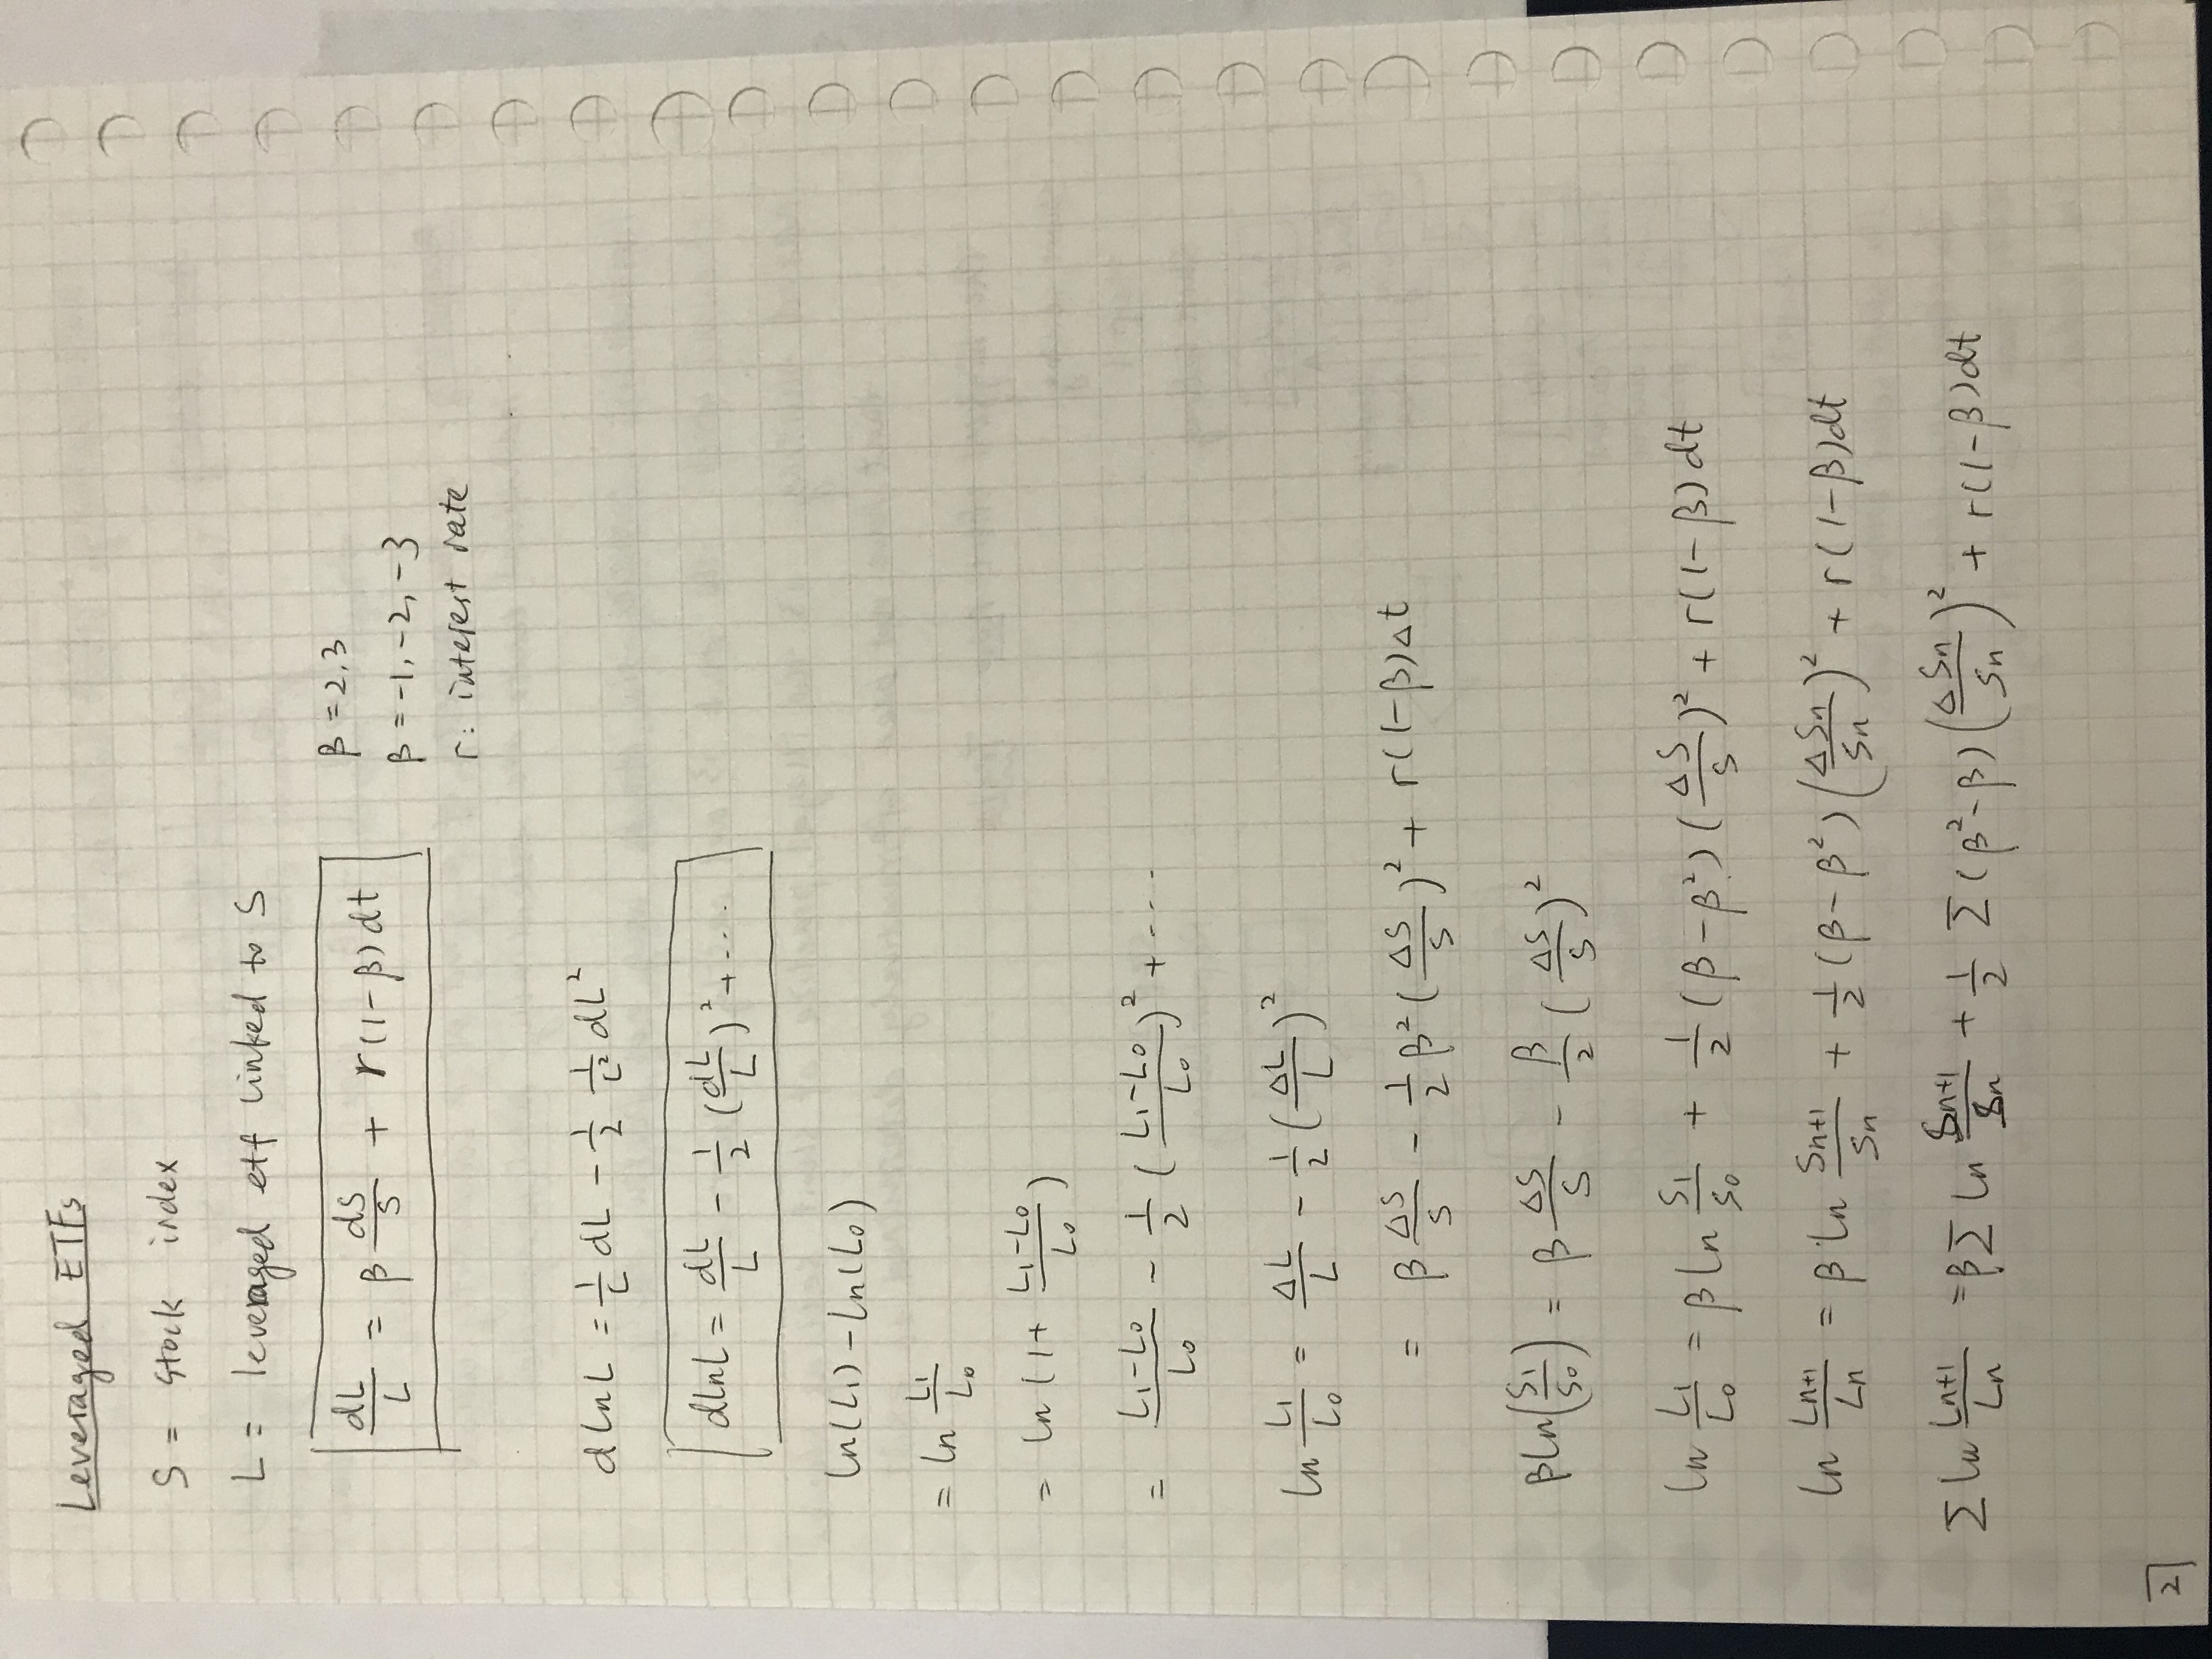 Leveraged ETFs
S = stock index
L = leveraged etf linked to S
dL/L = β dS/S + r(1-β)dt
β = 2,3
β = -1, -2, -3
r: interest rate
d ln L = 1/L dL - 1/2 1/L² dL²
dlnL = dL/L - 1/2 (dL/L)² + ...
ln(L₁) - ln(L₀)
= ln L₁/L₀
= ln (1+ (L₁-L₀)/L₀)
= (L₁-L₀)/L₀ - 1/2 ((L₁-L₀)/L₀)² + ...
ln L₁/L₀ = ΔL/L - 1/2 (ΔL/L)²
= β ΔS/S - 1/2 β² (ΔS/S)² + r(1-β)Δt
βln(S₁/S₀) = β ΔS/S - β/2 (ΔS/S)²
ln L₁/L₀ = β ln S₁/S₀ + 1/2 (β-β²) (ΔS/S)² + r(1-β)dt
ln Lₙ₊₁/Lₙ = β ln Sₙ₊₁/Sₙ + 1/2 (β-β²) (ΔSₙ/Sₙ)² + r(1-β)dt
Σ ln Lₙ₊₁/Lₙ = βΣ ln Sₙ₊₁/Sₙ + 1/2 Σ(β²-β) (ΔSₙ/Sₙ)² + r(1-β)dt
2